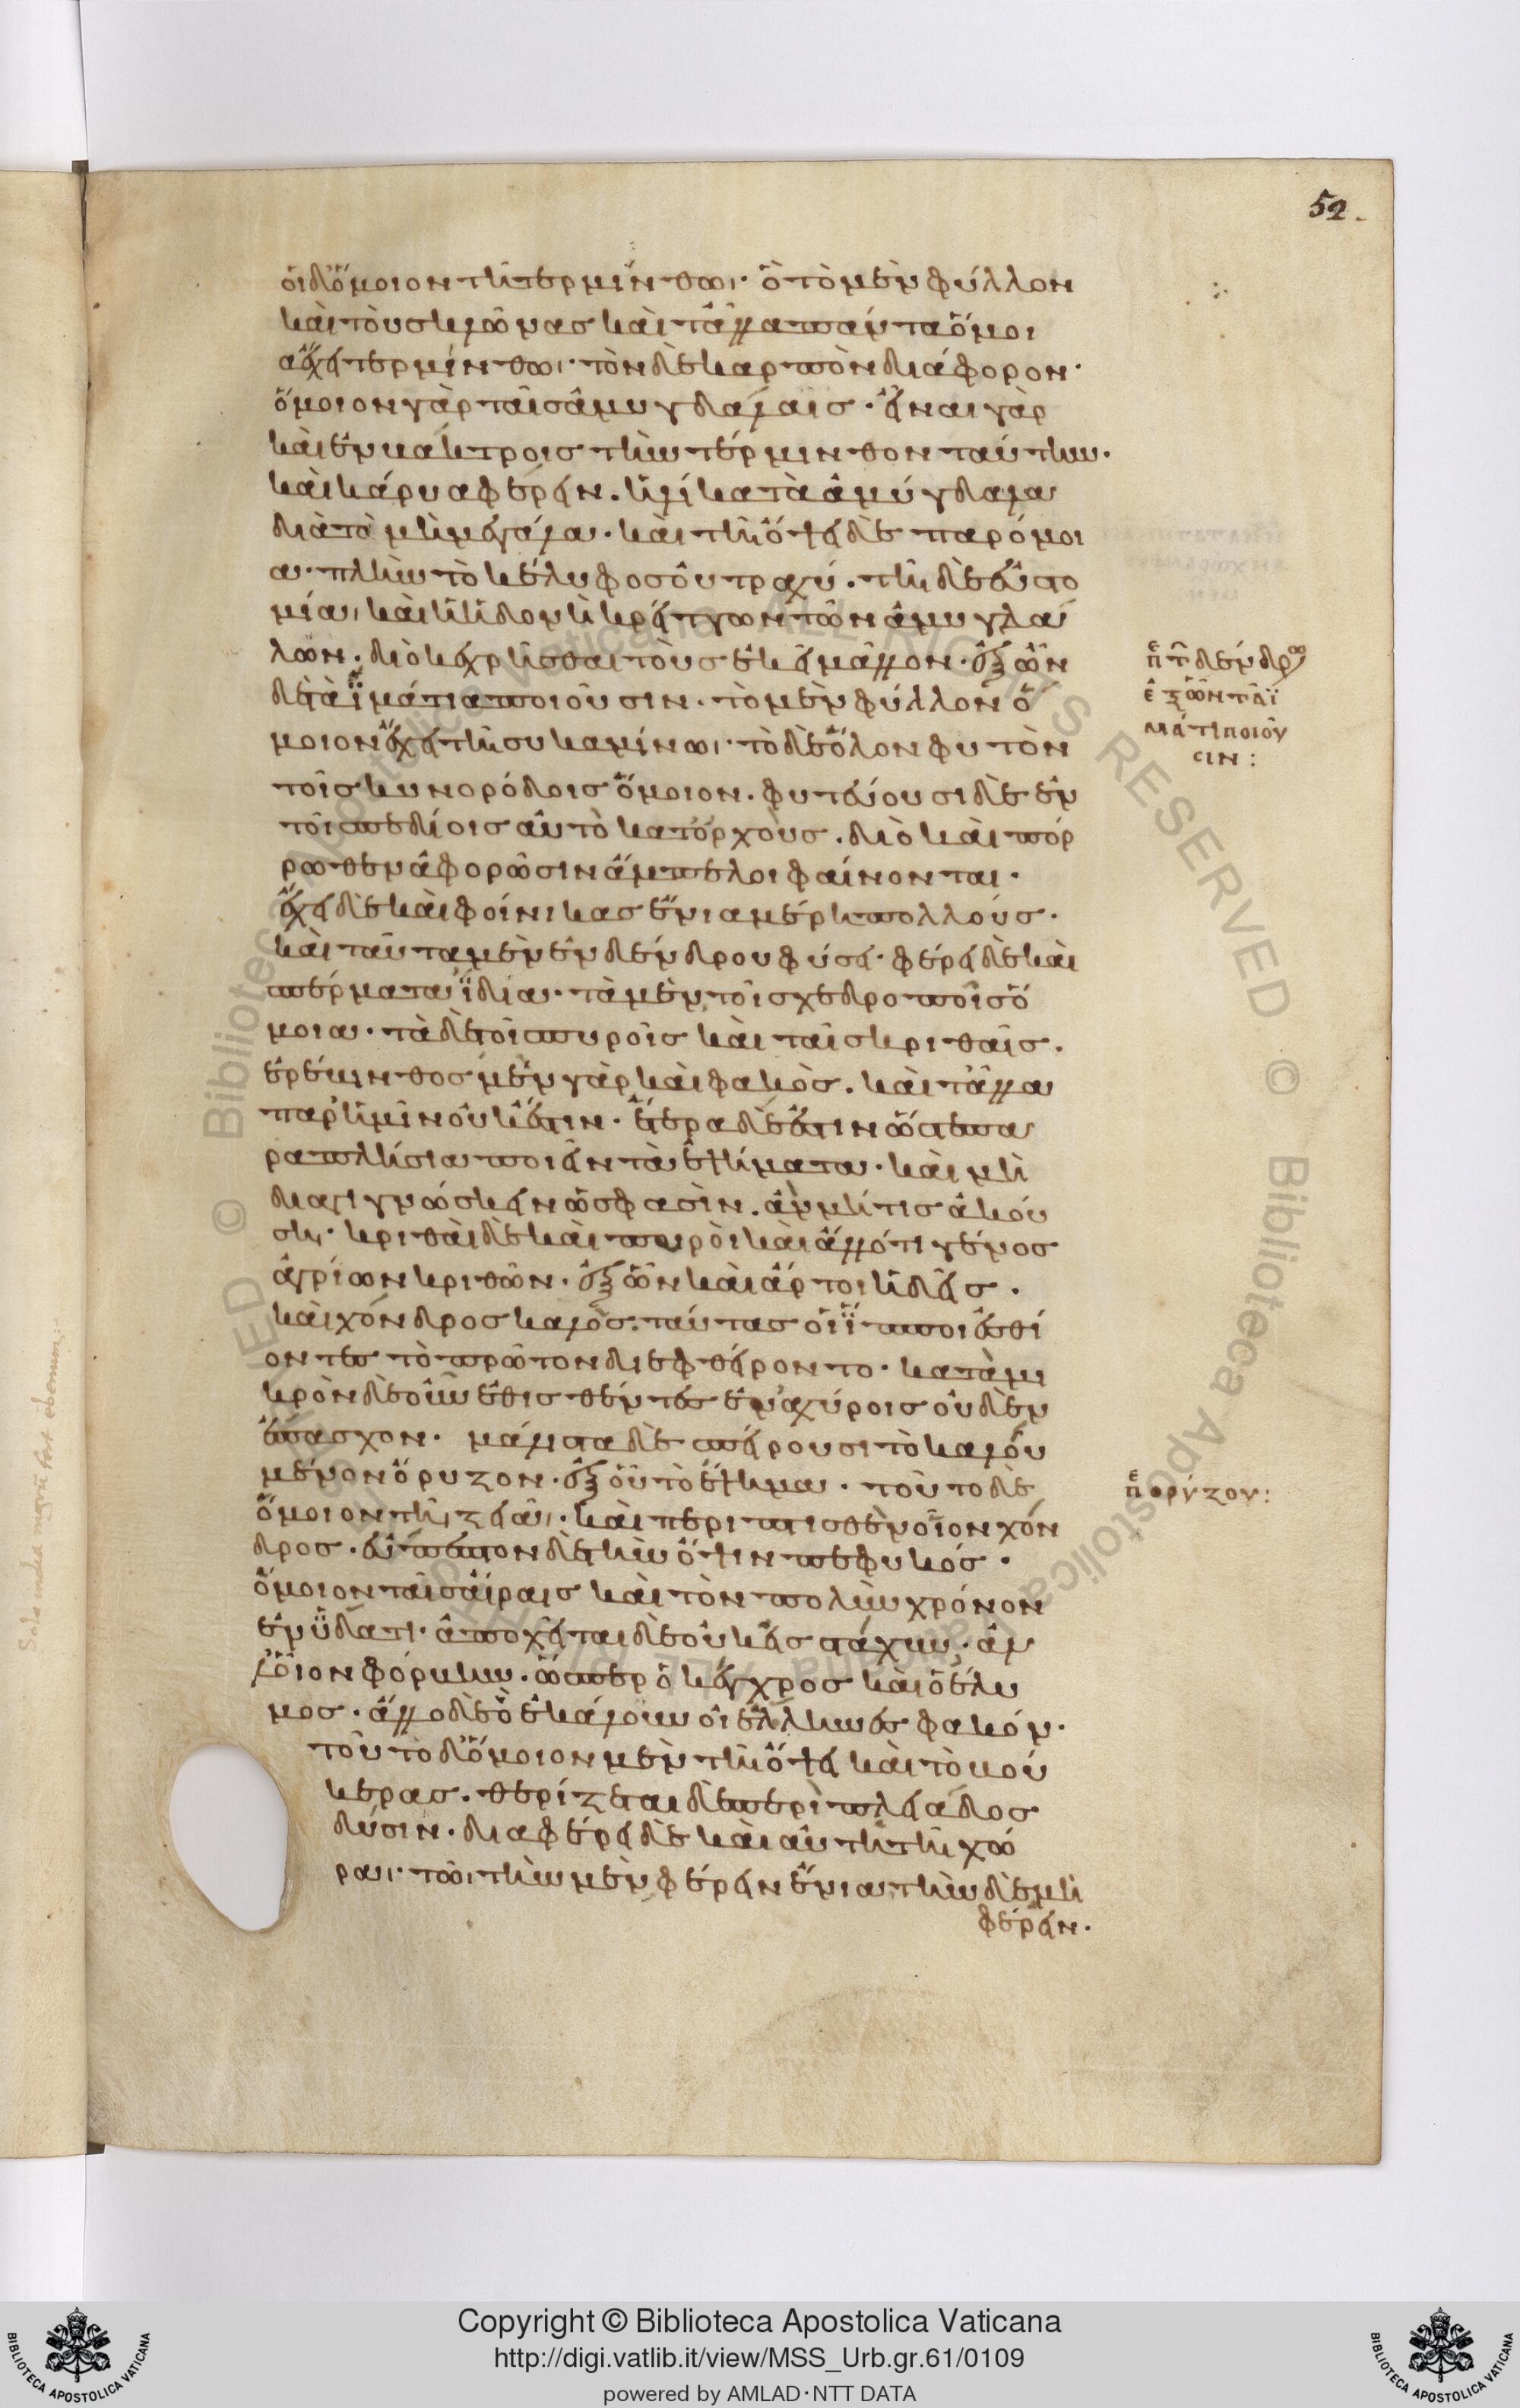 52.
οἱ δ' ὅμοιον τῆι τερμίνθωι· ὃ τὸ μὲν φύλλον
καὶ τοὺς κλῶνας καὶ τἆλλα πάντα ὅμοι
α ἔχει τερμίνθωι· τὸν δὲ καρπὸν διάφορον·
ὅμοιον γὰρ ταῖς ἀμυγδαλαῖς· εἶναι γὰρ
καὶ ἐν βάκτροις τὴν τέρμινθον ταύτην·
καὶ κάρυα φέρειν. ἡλίκα τὰ ἀμύγδαλα
διὰ τὸ μὴ μεγάλα· καὶ τῆι ὄψει δὲ παρόμοι
α· πλὴν τὸ κέλυφος οὐ τραχύ. τῆι δὲ εὐστο
μίαι καὶ ἡδονῆι κρείττων τῶν ἀμυγδα
λῶν. διὸ καὶ χρῆσθαι τοὺς ἐκεῖ μᾶλλον. ἐξ ὧν
δὲ τὰ ἱμάτια ποιοῦσιν. τὸ μὲν φύλλον ὅ
μοιον ἔχει τῆι συκαμίνωι· τὸ δὲ ὅλον φυτὸν
τοῖς κυνορόδοις ὅμοιον. φυτεύουσι δὲ ἐν
τοῖς πεδίοις αὐτὸ κατ' ὄρχους. διὸ καὶ πόρ
ρωθεν ἀφορῶσιν ἄμπελοι φαίνονται.
ἔχει δὲ καὶ φοίνικας ἔνια μέρη πολλούς.
καὶ ταῦτα μὲν ἐν δένδρου φύσει· φέρει δὲ καὶ
σπέρματα ἴδια· τὰ μὲν τοῖς χεδροποῖς ὅ
μοια· τὰ δὲ τοῖς πυροῖς καὶ ταῖς κριθαῖς.
ἐρέβινθος μὲν γὰρ καὶ φακὸς. καὶ τἆλλα
παρ' ἡμῖν οὐκ ἔστιν. ἕτερα δὲ ἔστιν ὥστε πα
ραπλήσια ποιεῖν τὰ ἑψήματα. καὶ μὴ
διαγιγνώσκειν ὥς φασὶν. ἂν μή τις ἀκού
σηι· κριθαὶ δὲ καὶ πυροὶ καὶ ἄλλό τι γένος
ἀγρίων κριθῶν. ἐξ ὧν καὶ ἄρτοι ἡδεῖς.
καὶ χόνδρος καλός. ταύτας οἱ ἵπποι ἐσθί
οντες τὸ πρῶτον διεφθείροντο. κατὰ μι
κρὸν δὲ οὖν ἐθισθέντες ἐν ἀχύροις οὐδὲν
ἔπασχον. μάλιστα δὲ σπείρουσι τὸ καλού
μενον ὄρυζον. ἐξ οὗ τὸ ἕψημα. τοῦτο δὲ
ὅμοιον τῆι ζειᾶι. καὶ περιπτισθὲν οἷον χόν
δρος. εὔπεπτον δὲ τὴν ὄψιν πεφυκός.
ὅμοιον ταῖς αἴραις καὶ τὸν πολὺν χρόνον
ἐν ὕδατι. ἀποχεῖται δὲ οὐκ εἰς στάχυν. ἀλ
λ' οἷον φόβην. ὥσπερ ὁ κέγχρος καὶ ὁ ἔλυ
μος. ἄλλο δὲ ὃ ἐκάλουν οἱ ἕλληνες φακόν.
τοῦτο δ' ὅμοιον μὲν τῆι ὄψει καὶ τὸ βού
κερας. θερίζεται δὲ περὶ πλειάδος
δύσιν. διαφέρει δὲ καὶ αὐτὴ τῆι χώ
ραι. τῶι τὴν μὲν φέρειν ἔνια τὴν δὲ μὴ
φέρειν.
π τ δένδρω
ἐξ ὧν τὰ ἱ
μάτι ποιοῦ
σιν:
π ὀρύζου:
Copyright © Biblioteca Apostolica Vaticana
http://digi.vatlib.it/view/MSS_Urb.gr.61/0109
powered by AMLAD·NTT DATA
BIBLIOTECA APOSTOLICA VATICANA
BIBLIOTECA APOSTOLICA VATICANA